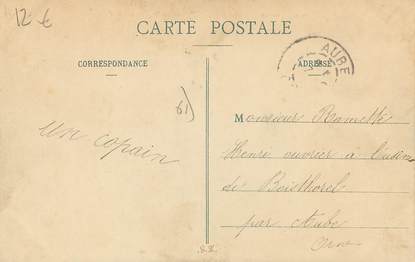 12 €
CARTE POSTALE
CORRESPONDANCE
ADRESSE
AUBE
61)
un copain
Monsieur Ramette
Henri ouvrier à l'usine
de Boisthorel
par Aube
Orne